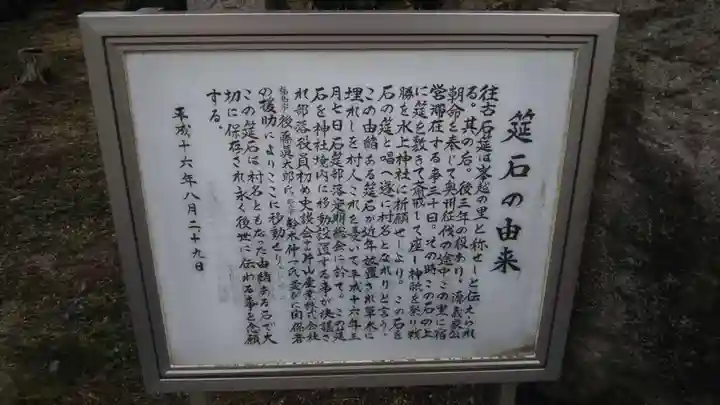 筵石の由来
往古石筵は峯越の里と称せしと伝えられ
る。其の后。後三年の役あり。源義家公
朝命を奉じて奥州征伐の途中この里に宿
営滞在する事三十日。その時この石の上
に筵を敷きて斎戒して座し神歌を奏り戦
勝を水上神社に祈願せしより。この石を
石の筵と唱へ遂に村名となれりと言う。
この由緒ある筵石が近年放置され草木に
埋れしを村人これを憂いて平成十六年三
月七日石筵部落定期総会に於て。この筵
石を神社境内に移動設置する事が決議さ
れ部落役員初め史談会
後藤眞太郎氏
鈴木伸一氏並びに関係者
の援助によりここに移動せり。
この筵石は村名ともなった由緒ある石で大
切に保存され永く後世に伝わる事を念願
する。
平成十六年八月二十九日